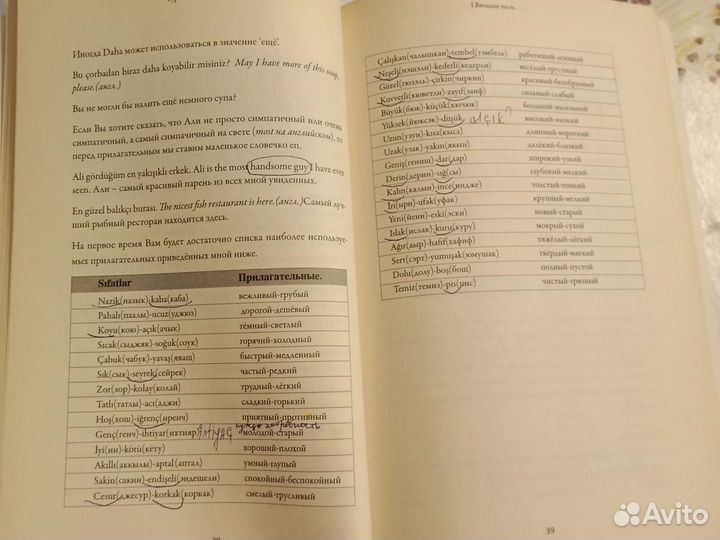 Иногда Daha может использоваться в значение 'ещё'.
Bu çorbadan biraz daha koyabilir misiniz? May I have more of this soup,
please.(англ.)
Вы не могли бы налить ещё немного супа?
Если Вы хотите сказать, что Али не просто симпатичный или очень
симпатичный, а самый симпачичный на свете (most на английском), то
перед прилагательным мы ставим маленькое словечко en.
Ali gördüğüm en yakışıklı erkek. Ali is the most handsome guy I have ever
seen. Али – самый красивый парень из всех мной увиденных.
En güzel balıkçı burası. The nicest fish restaurant is here.(англ.)Самый луч-
ший рыбный ресторан находится здесь.
На первое время Вам будет достаточно списка наиболее используе-
мых прилагательных приведённых мной ниже.
Sıfatlar Прилагательные.
Nazik(назык)-kaba(каба) вежливый-грубый
Pahalı(паалы)-ucuz(уджюз) дорогой-дешёвый
Koyu(кою)-açık(ачык) тёмный-светлый
Sıcak(сыджяк)-soğuk(соук) горячий-холодный
Çabuk(чабук)-yavaş(яваш) быстрый-медленный
Sık(сык)-seyrek(сейрек) частый-редкий
Zor(зор)-kolay(колай) трудный-лёгкий
Tatlı(татлы)-acı(аджи) сладкий-горький
Hoş(хош)-iğrenç(иренч) приятный-противный
Genç(генч)-ihtiyar(ихтияр) молодой-старый
İyi(ии)-kötü(кёту) хороший-плохой
Akıllı(аккылы)-aptal(аптал) умный-глупый
Sakin(сакин)-endişeli(эндешели) спокойный-беспокойный
Cesur(джесур)-korkak(коркак) смелый-трусливый
I Вводная часть
Çalışkan(чалышкан)-tembel(тэмбель) работящий-ленивый
Neşeli(нэшэли)-kederli(кедерли) весёлый-грустный
Güzel(гюзэль)-çirkin(чиркин) красивый-безобразный
Kuvvetli(кюветли)-zayıf(заиф) сильный-слабый
Büyük(бюк)-küçük(кючюк) большой-маленький
Yüksek(йюксэк)-düşük açık? высокий-низкий
Uzun(узун)-kısa(кыса) длинный-короткий
Uzak(узак)-yakın(якын) далёкий-близкий
Geniş(гениш)-dar(дар) широкий-узкий
Derin(дерин)-sığ(сы) глубокий-мелкий
Kalın(калын)-ince(индже) толстый-тонкий
İri(ири)-ufak(уфак) крупный-мелкий
Yeni(йени)-eski(эски) новый-старый
Islak(ислак)-kuru(куру) мокрый-сухой
Ağır(аыр)-hafif(хафиф) тяжёлый-лёгкий
Sert(сэрт)-yumuşak(юмушак) твёрдый-мягкий
Dolu(долу)-boş(бош) полный-пустой
Temiz(темиз)-pis(пис) чистый-грязный
39
Avito